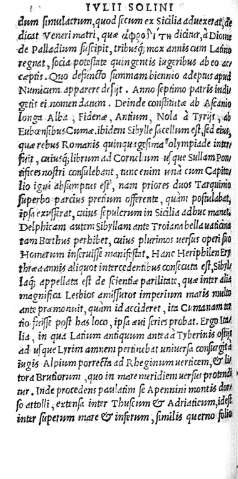 IVLII SOLINI
dum simulacrum, quod secum ex Sicilia aduexerat, de
dicat Veneri matri, quæ dicitur, à Diome
de Palladium suscipit, tribusq; mox annis cum Latino
regnat, socia potestate quingentis iugeribus ab eo ac
ceptis. Quo defuncto summam biennio adeptus apud
Numicum apparere desijt. Anno septimo patris indi
getis ei nomen datum. Deinde constitutæ ab Ascanio
longa Alba, Fidenæ, Antium, Nola à Tyrijs, ab
Euboensibus Cumæ. ibidem Sibyllæ sacellum est, sed eius,
quæ rebus Romanis quinquagesima olympiade inter
fuit, cuiusq; librum ad Cornelium usque Sullam Pon
tifices nostri consulebant, tunc enim unà cum Capito
lio igni absumptus est, nam priores duos Tarquinio
superbo parcius pretium offerente, quàm postulabat,
ipsa exusserat, cuius sepulcrum in Sicilia adhuc manet.
Delphicam autem Sibyllam ante Troiana bella uaticina
tam Bœthus perhibet, cuius plurimos uersus operi suo
Homerum inseruisse manifestat. Hanc Heriphilen Ery
thræa annis aliquot intercedentibus consecuta est, Sibyl
laq; appellata est de scientiæ parilitate, quæ inter alia
magnifica Lesbios amissuros imperium maris multo
ante præmonuit, quàm id accideret, ita Cumanam ter
tio fuisse post has loco, ipsa æui series probat. Ergo Ita
lia, in qua Latium antiquum antea à Tyberinis ostijs
ad usque Lyrim amnem pertinebat uniuersa consurgit à
iugis Alpium porrecta ad Rheginum uerticem, & li
tora Brutiorum, quo in mare meridiem uersus proten
ditur, Inde procedens paulatim se Apennini montis dor
so attollit, extensa inter Thuscum & Adriaticum, id est
inter superum mare & inferum, similis querno folio